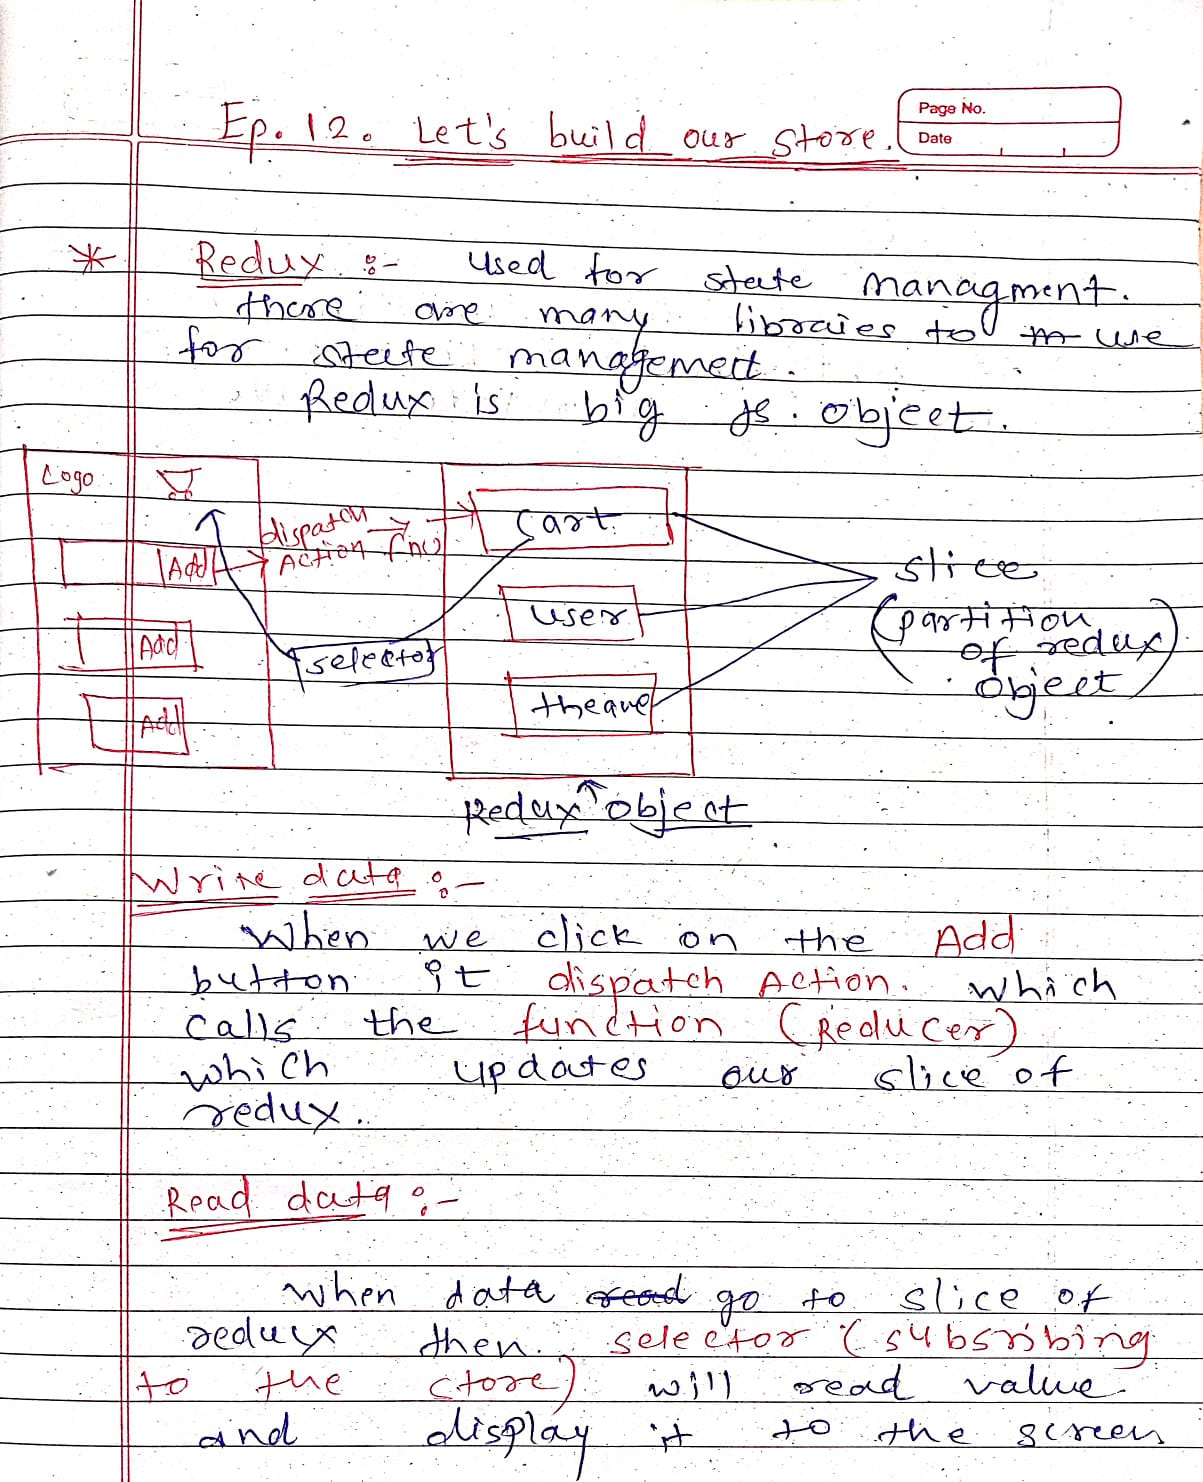 Page No.
Date
Ep. 12. Let's build our store.
* Redux :- Used for state managment.
there are many libraies to use
for state management.
Redux is big JS. object.
Logo
dispatch
Action fn()
Add
Add
Add
selector
Cart
User
theame
slice
(partition
of redux
object)
Redux object
Write data :-
When we click on the Add
button it dispatch Action. which
calls the function (Reducer)
which updates our slice of
redux.
Read data :-
When data read go to slice of
redux then. selector (subsribing
to the store) will read value
and display it to the screen